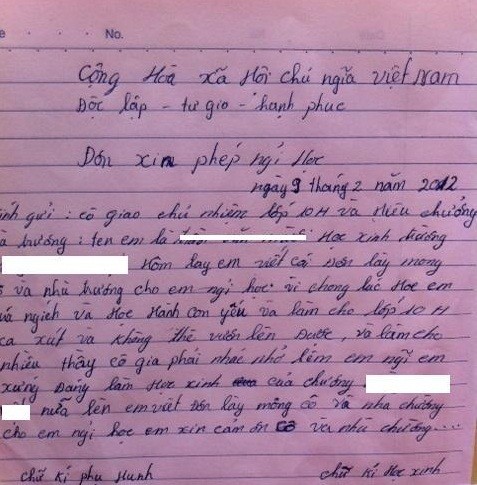 No.
Cộng Hòa xã Hội chủ ngĩa việt Nam
Độc lập - tự gio - hạnh phuc
Đơn xin phép ngỉ Học
ngày 9 tháng 2 năm 2012
ính gửi : cô giao chủ nhiệm lớp 10 H và Hiệu chưởng
à trương : ten em là Học xinh trương
Hôm lay em viết cái Đơn lày mong
và nhà trương cho em ngỉ học vì chong lúc Học em
uá ngịch và Học Hành con yếu và làm cho lớp 10 H
ca xut và không thể vươn lên Được, và làm cho
nhiều thầy cô gia phải nhac nhở lên em ngĩ em
xưng Đang làm Học xinh của chương
nữa lên em viết Đơn lày mông cô và nha chương
cho em ngỉ học em xin cảm ơn cô và nhà chương....
chữ kí phu Hunh chữ kí Học xinh